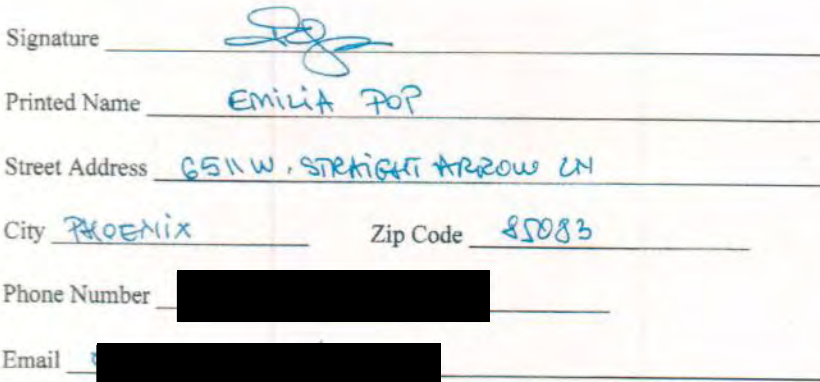 Signature
Printed Name EMILIA POP
Street Address 6511 W. STRAIGHT ARROW LN
City PHOENIX Zip Code 85083
Phone Number
Email